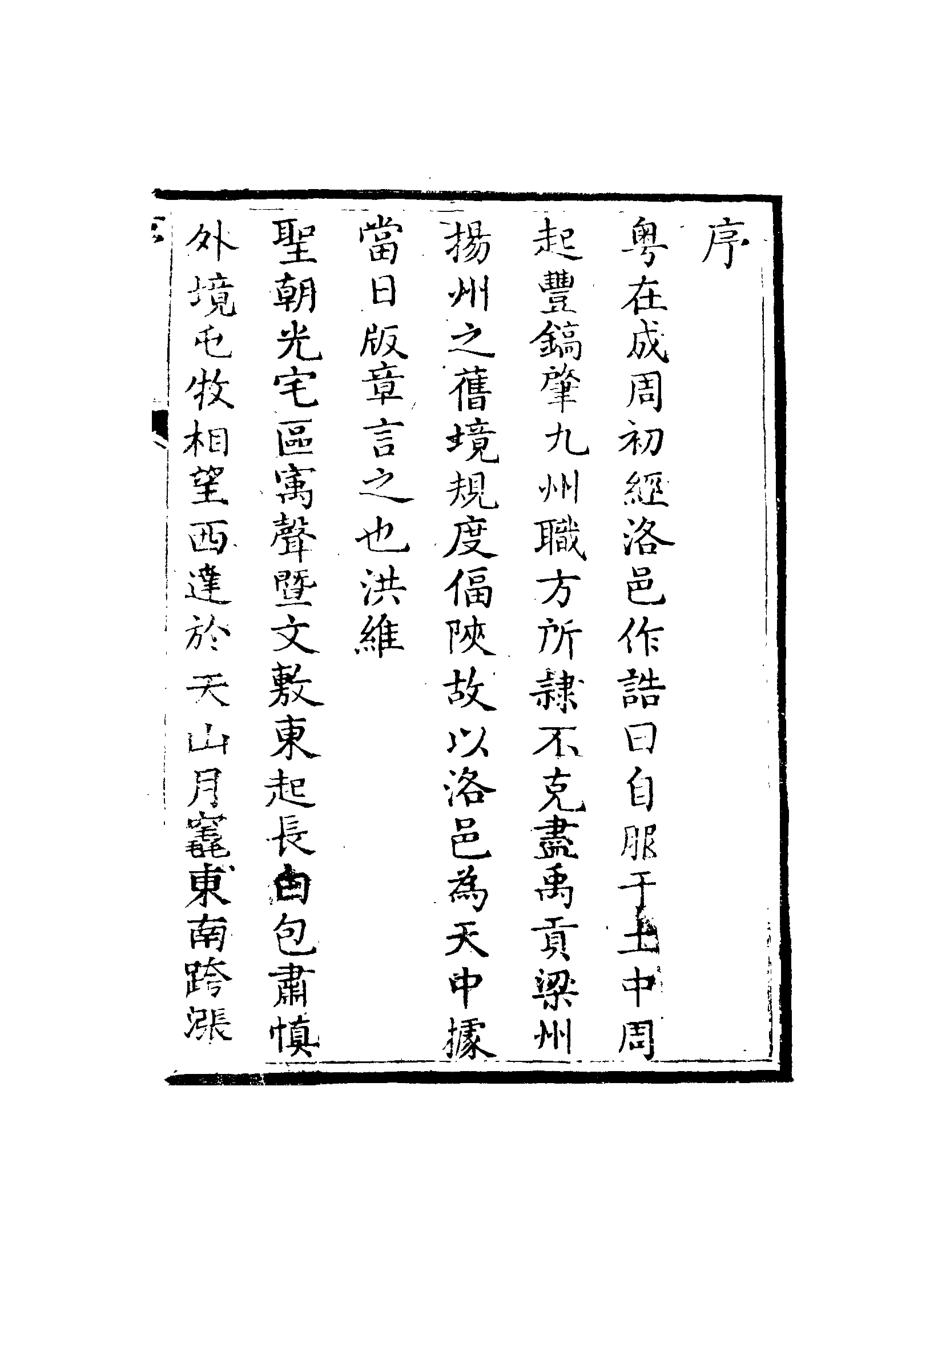 序
粤在成周初經洛邑作誥曰自服于土中周
起豐鎬肇九州職方所隸不克盡禹貢梁州
揚州之舊境規度偪陜故以洛邑為天中據
當日版章言之也洪維
聖朝光宅區寓聲暨文敷東起長白包肅慎
外境屯牧相望西達於天山月竁東南跨漲